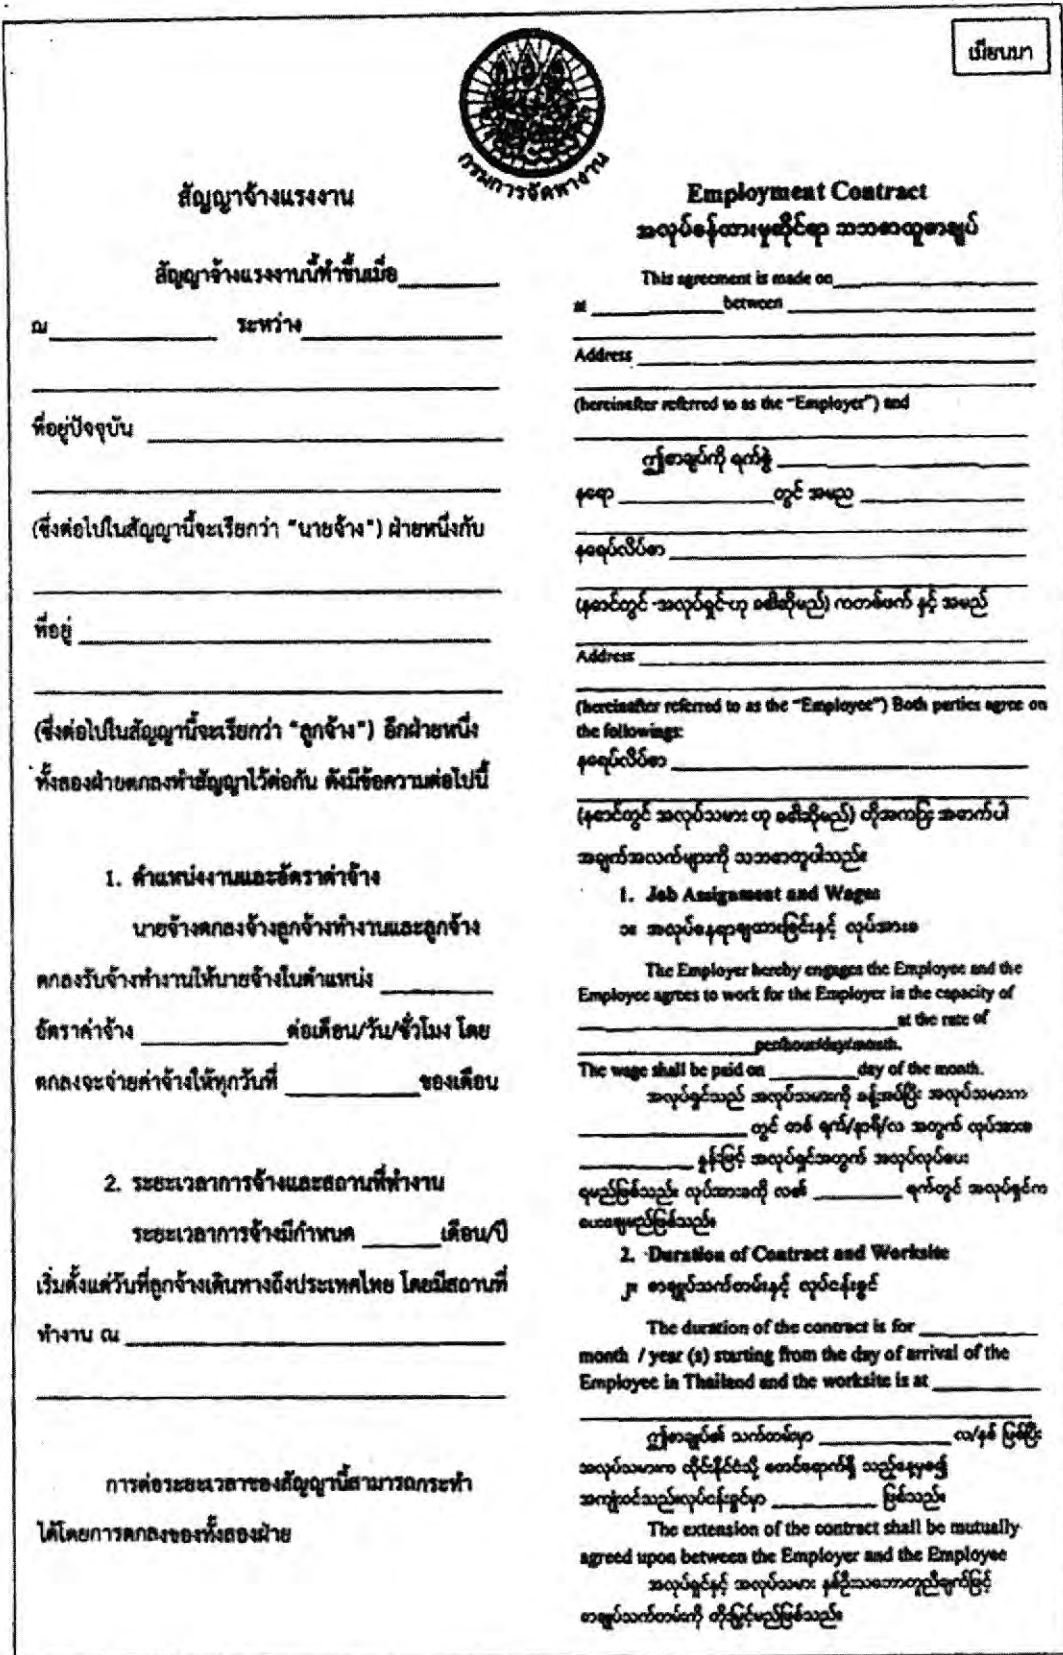 เมียนมา
กรมการจัดหางาน
สัญญาจ้างแรงงาน
สัญญาจ้างแรงงานนี้ทำขึ้นเมื่อ
ณ ระหว่าง
ที่อยู่ปัจจุบัน
(ซึ่งต่อไปในสัญญานี้จะเรียกว่า "นายจ้าง") ฝ่ายหนึ่งกับ
ที่อยู่
(ซึ่งต่อไปในสัญญานี้จะเรียกว่า "ลูกจ้าง") อีกฝ่ายหนึ่ง
ทั้งสองฝ่ายตกลงทำสัญญาไว้ต่อกัน ดังมีข้อความต่อไปนี้
1. ตำแหน่งงานและอัตราค่าจ้าง
นายจ้างตกลงจ้างลูกจ้างทำงานและลูกจ้าง
ตกลงรับจ้างทำงานให้นายจ้างในตำแหน่ง
อัตราค่าจ้าง ต่อเดือน/วัน/ชั่วโมง โดย
ตกลงจะจ่ายค่าจ้างให้ทุกวันที่ ของเดือน
2. ระยะเวลาการจ้างและสถานที่ทำงาน
ระยะเวลาการจ้างมีกำหนด เดือน/ปี
เริ่มตั้งแต่วันที่ลูกจ้างเดินทางถึงประเทศไทย โดยมีสถานที่
ทำงาน ณ
การต่อระยะเวลาของสัญญานี้สามารถกระทำ
ได้โดยการตกลงของทั้งสองฝ่าย
Employment Contract
အလုပ်ခန့်ထားမှုဆိုင်ရာ သဘောတူစာချုပ်
This agreement is made on
at between
Address
(hereinafter referred to as the "Employer") and
ဤစာချုပ်ကို ရက်စွဲ
နေရာ တွင် အမည
နေရပ်လိပ်စာ
(နောင်တွင် အလုပ်ရှင်-ဟု ခေါ်ဆိုမည်) ကတစ်ဖက် နှင့် အမည်
Address
(hereinafter referred to as the "Employee") Both parties agree on
the followings:
နေရပ်လိပ်စာ
(နောင်တွင် အလုပ်သမား ဟု ခေါ်ဆိုမည်) တို့အကြား အောက်ပါ
အချက်အလက်များကို သဘောတူပါသည်။
1. Job Assignment and Wages
၁။ အလုပ်နေရာချထားခြင်းနှင့် လုပ်အားခ
The Employer hereby engages the Employee and the
Employee agrees to work for the Employer in the capacity of
at the rate of
per/hour/day/month.
The wage shall be paid on day of the month.
အလုပ်ရှင်သည် အလုပ်သမားကို ခန့်အပ်ပြီး အလုပ်သမားက
တွင် တစ် ရက်/နာရီ/လ အတွက် လုပ်အားခ
နှုန်းဖြင့် အလုပ်ရှင်အတွက် အလုပ်လုပ်ပေး
ရမည်ဖြစ်သည်။ လုပ်အားခကို လ၏ ရက်တွင် အလုပ်ရှင်က
ပေးချေမည်ဖြစ်သည်။
2. Duration of Contract and Worksite
၂။ စာချုပ်သက်တမ်းနှင့် လုပ်ငန်းခွင်
The duration of the contract is for
month / year (s) starting from the day of arrival of the
Employee in Thailand and the worksite is at
ဤစာချုပ်၏ သက်တမ်းမှာ လ/နှစ် ဖြစ်ပြီး
အလုပ်သမားက ထိုင်းနိုင်ငံသို့ စတင်ရောက်ရှိ သည့်နေ့မှစ၍
အကျုံးဝင်သည်။လုပ်ငန်းခွင်မှာ ဖြစ်သည်။
The extension of the contract shall be mutually
agreed upon between the Employer and the Employee
အလုပ်ရှင်နှင့် အလုပ်သမား နှစ်ဦးသဘောတူညီချက်ဖြင့်
စာချုပ်သက်တမ်းကို တိုးမြှင့်မည်ဖြစ်သည်။